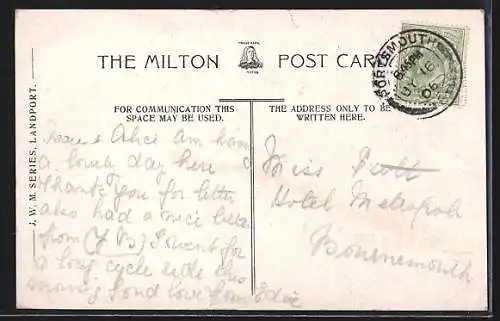 THE MILTON POST CARD
FOR COMMUNICATION THIS
SPACE MAY BE USED.
THE ADDRESS ONLY TO BE
WRITTEN HERE.
J. W. M. SERIES, LANDPORT.
PORTSMOUTH
16
06
Alice Am having
a lovely day here
Thank you for letter
also had a nice letter
from (J B) I went for
a long cycle ride this
morning fond love from Edie
Miss Scott
Hotel Metropole
Bournemouth